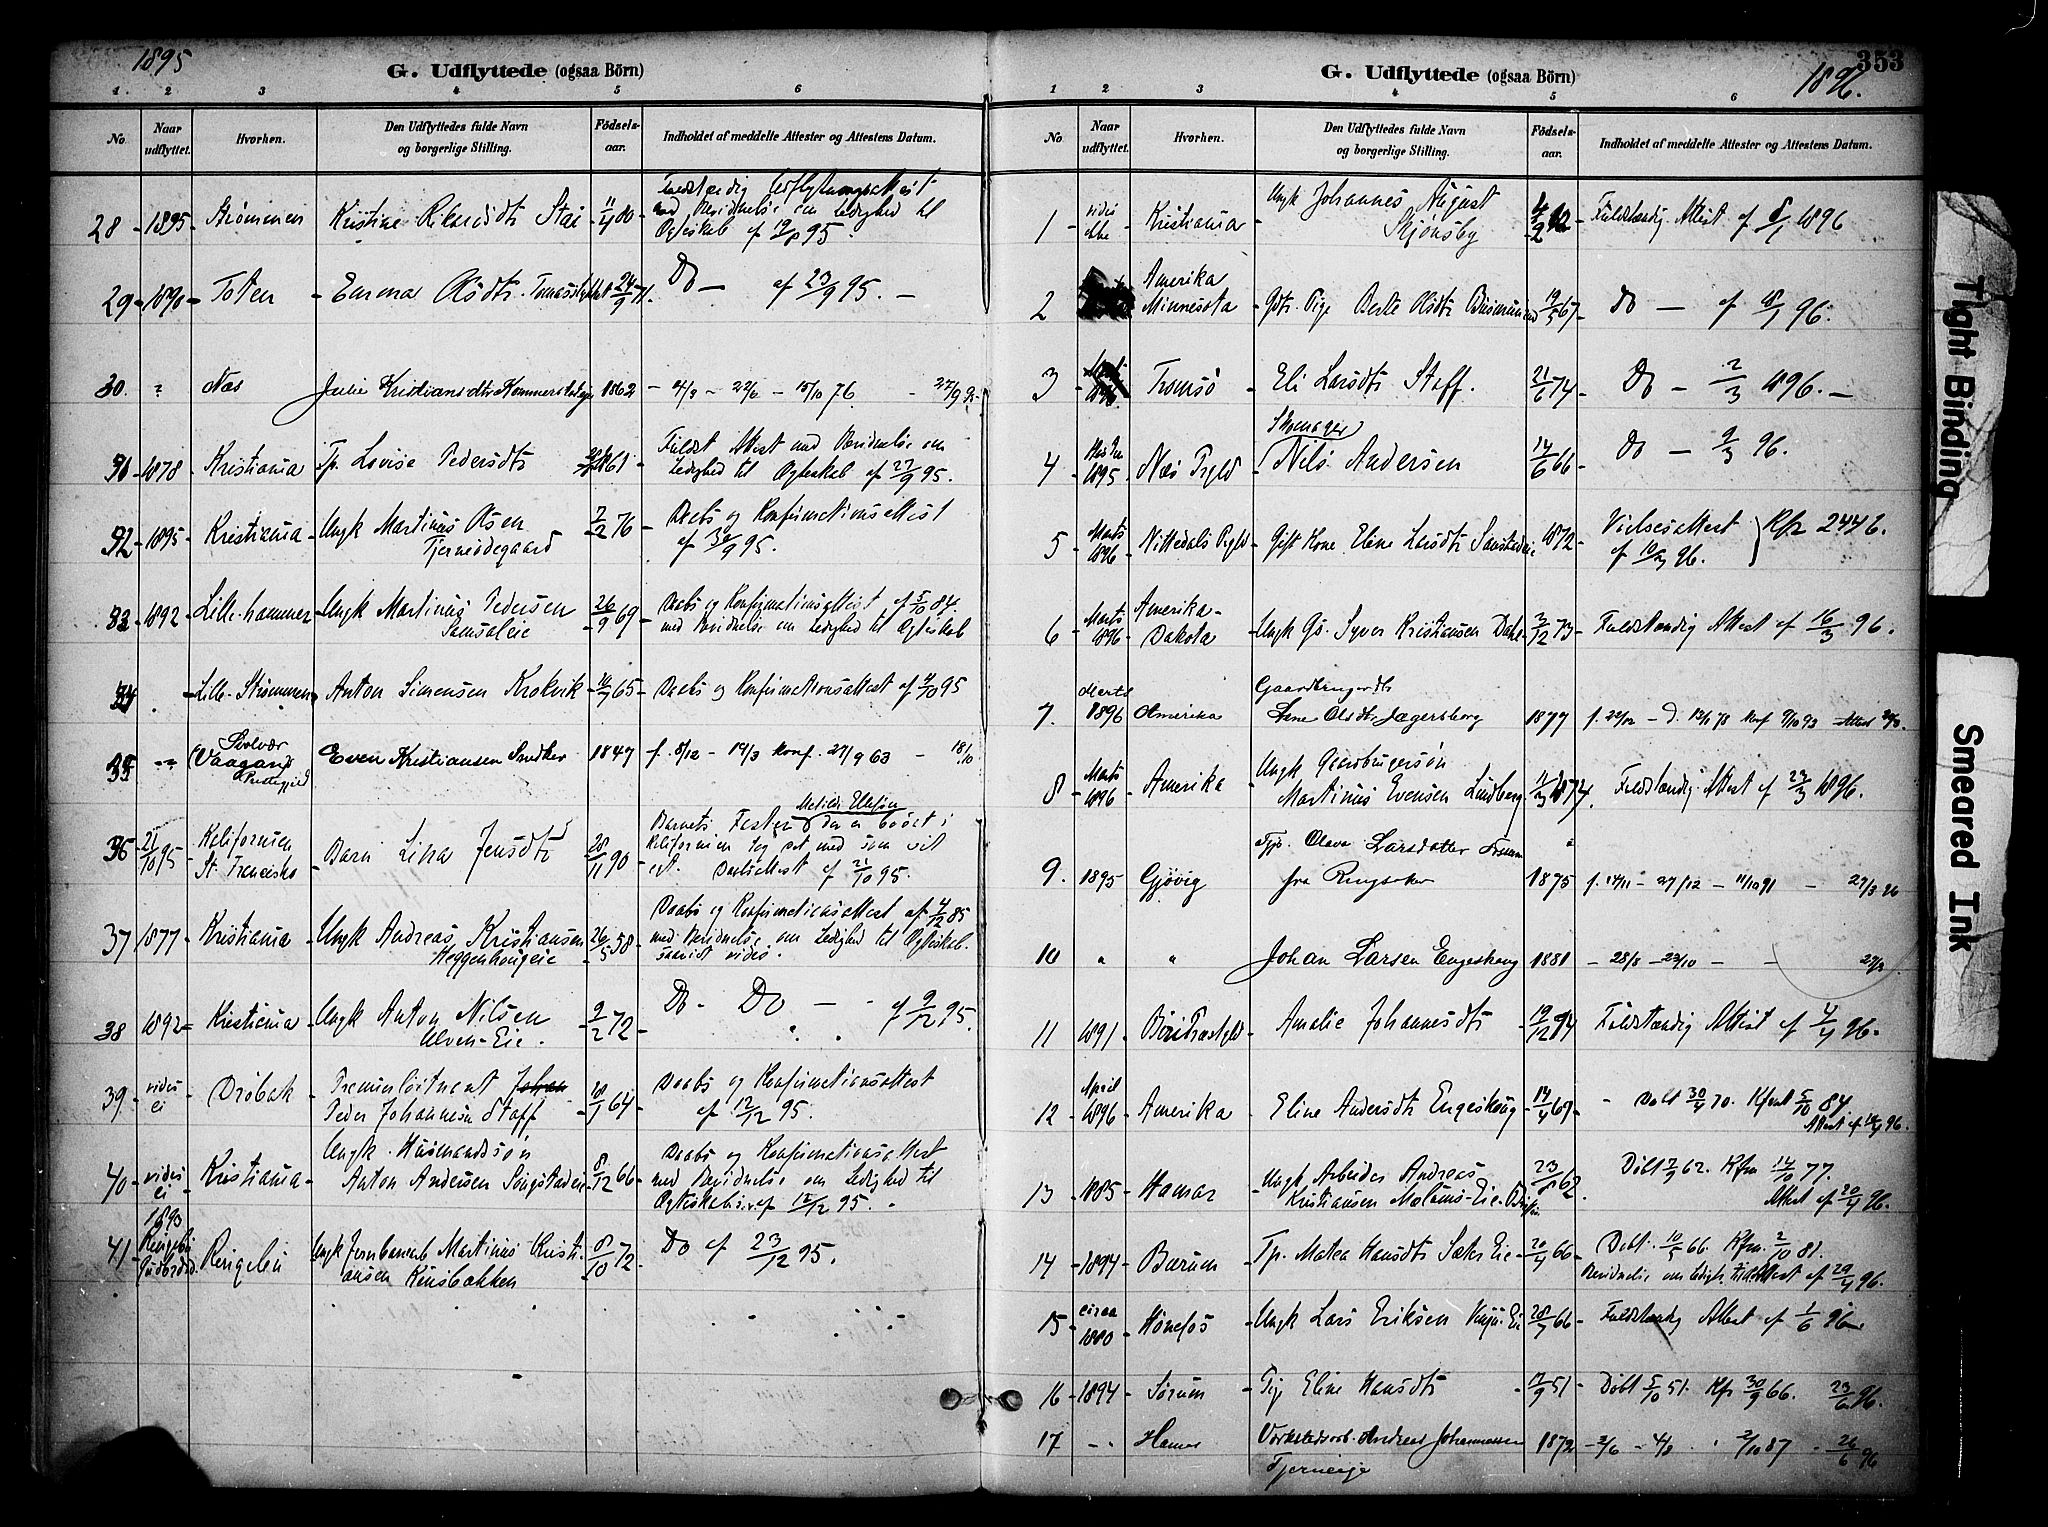 1895
G. Udflyttede (ogsaa Börn)
1. 2 3 4 5 6
No. Naar udflyttet. Hvorhen. Den Udflyttedes fulde Navn og borgerlige Stilling. Fødselsaar. Indholdet af meddelte Attester og Attestens Datum.
28 1895 Strömmen Kristine Stai 11/4 80 Fuldstændig Udflytningsattest
med Bevidnelse om Ledighed til
Egteskab af 19/8 95.
29 1890 Toten Emma Olsdtr. 24/9 71. Do — af 23/9 95. —
30. " Næs Julie Kristiansdtr 1862 — 22/6 — 15/10 76. — 27/9
31 1878 Kristiania Tp. Lovise Pedersdtr 61 Fuldst Attest med Bevidnelse om
Ledighed til Egteskab af 27/9 95.
32 1895 Kristiania Ungk Martinus Olsen 7/2 76 Daabs og Konfirmationsattest
Tjernsödegaard af 30/9 95.
33 1892 Lille-hammer Ungk Martinus Pedersen 26/9 69 Daabs og Konfirmationsattest af 5/10 84.
med Bevidnelse om Ledighed til Egteskab
34 . Lille-Strömmen Anton Simensen Krokvik 65 Daabs og Konfirmationsattest af 95
35 Svolvær
Vaagan Præstegjeld Even Kristiansen 1847 f. 8/12 — 19/3 konf. 27/9 63 — 18/10
36 21/10 95 Kalifornien
St. Francisko Barn Lina Jensdtr 28/11 90 Barnets Faster der er bosat i
Kalifornien tog det med som sit
eget. Daabsattest af 21/10 95.
37 1877 Kristiania Ungk Andreas Kristiansen 26/5 58 Daabs og Konfirmationsattest af 4/12 85
Heggenhougeie med Bevidnelse om Ledighed til Egteskab.
saavidt vides.
38 1892 Kristiania Ungk Anton Nilsen 9/2 72 Do — Do — af 9/12 95.
Ulven-Eie.
39 vides ei Dröbak Premierlöitnant Johan
Peder Johannesen Staff 20/1 64 Daabs og Konfirmationsattest
af 12/12 95.
40 vides ei Kristiania Ungk. Husmandssön
Anton Andersen 8/12 66 Daabs og Konfirmationsattest
med Bevidnelse om Ledighed til
Egteskab af 12/12 95.
41 1893 Ringebu Gudbrdsd. Ringebu Ungk Jernbanearb Martinus Kristi-
ansen Kinsbakken 8/10 72 Do af 23/12 95.
353
1896.
G. Udflyttede (ogsaa Börn)
1 2 3 4 5 6
No Naar udflyttet. Hvorhen. Den Udflyttedes fulde Navn og borgerlige Stilling. Fødselsaar. Indholdet af meddelte Attester og Attestens Datum.
1 vides ikke Kristiania Ungk Johannes August
Skjönsby Fuldstændig Attest af 8/1 1896
2 Amerika
Minnesota Gdtr. Pige Berte Olsdtr 19/5 67 Do — af 18/1 96.
3 Tromsö Eli Larsdtr Staff. 21/6 74 Do — 2/3 1896. —
4 1895 Næs Prgld Skomager
Nils Andersen 14/6 66 Do — 9/3 96.
5 Marts 1896 Nittedals Prgld Gift Kone Eline Larsdtr 1872 Vielsesattest
af 10/3 96. Kfr 2446.
6 Marts 1896 Amerika-
Dakota Ungk Gs. Syver Kristiansen Dahl 3/12 73 Fuldstændig Attest af 16/3 96.
7. Marts 1896 Amerika Gaardbrugerdtr
Lene Olsdtr. Jægersborg 1877 f. 22/12 — D. 13/1 78 konf 9/10 93 — Attest
8 Marts 1896 Amerika Ungk Gaardbrugersön
Martinus Evensen Lundberg 11/3 1874. Fuldstændig Attest af 23/3 1896.
9. 1895 Gjövig Tjp. Olava Larsdatter
fra Ringsaker 1875 f. 14/11 — 27/12 — 11/10 91 — 27/3 96
10 " " Johan Larsen Engeshoug 1881 — 28/8 — 23/10 — — 27/3
11 1891 Böri Prastgld Amalie Johannesdtr 19/12 Fuldstændig Attest af 4/4 96.
12 April 1896 Amerika Eline Andersdtr Engeshoug 14/4 69 Döbt 30/4 70. Kfmt 5/10 84
Attest af 96.
13 1885 Hamar Ungk Arbeider Andreas
Kristiansen 23/8 62 Döbt 7/9 62. Kfm 14/10 77.
Attest af 20/4 96.
14 1894 Bærum Tp. Matea Hansdtr Sæter Eie 20/4 66 Döbt. 10/5 66. Kfm. 2/10 81.
Bevidnelse om Ledigh. Attest af 29/4 96.
15 cirka 1880 Hönefos Ungk Lars Eriksen 66 Fuldstændig Attest af 1/6 96
16 1894 Sörum Pige Eline Hansdtr 17/9 51 Döbt 5/10 51. Kfr 30/9 66. 23/6 96.
17 Hamar Værkstedsarb. Andreas Johannessen 1872 — 2/6 — 4/8 2/10 87 26/6 96
Tjerneeie
Tight Binding
Smeared Ink